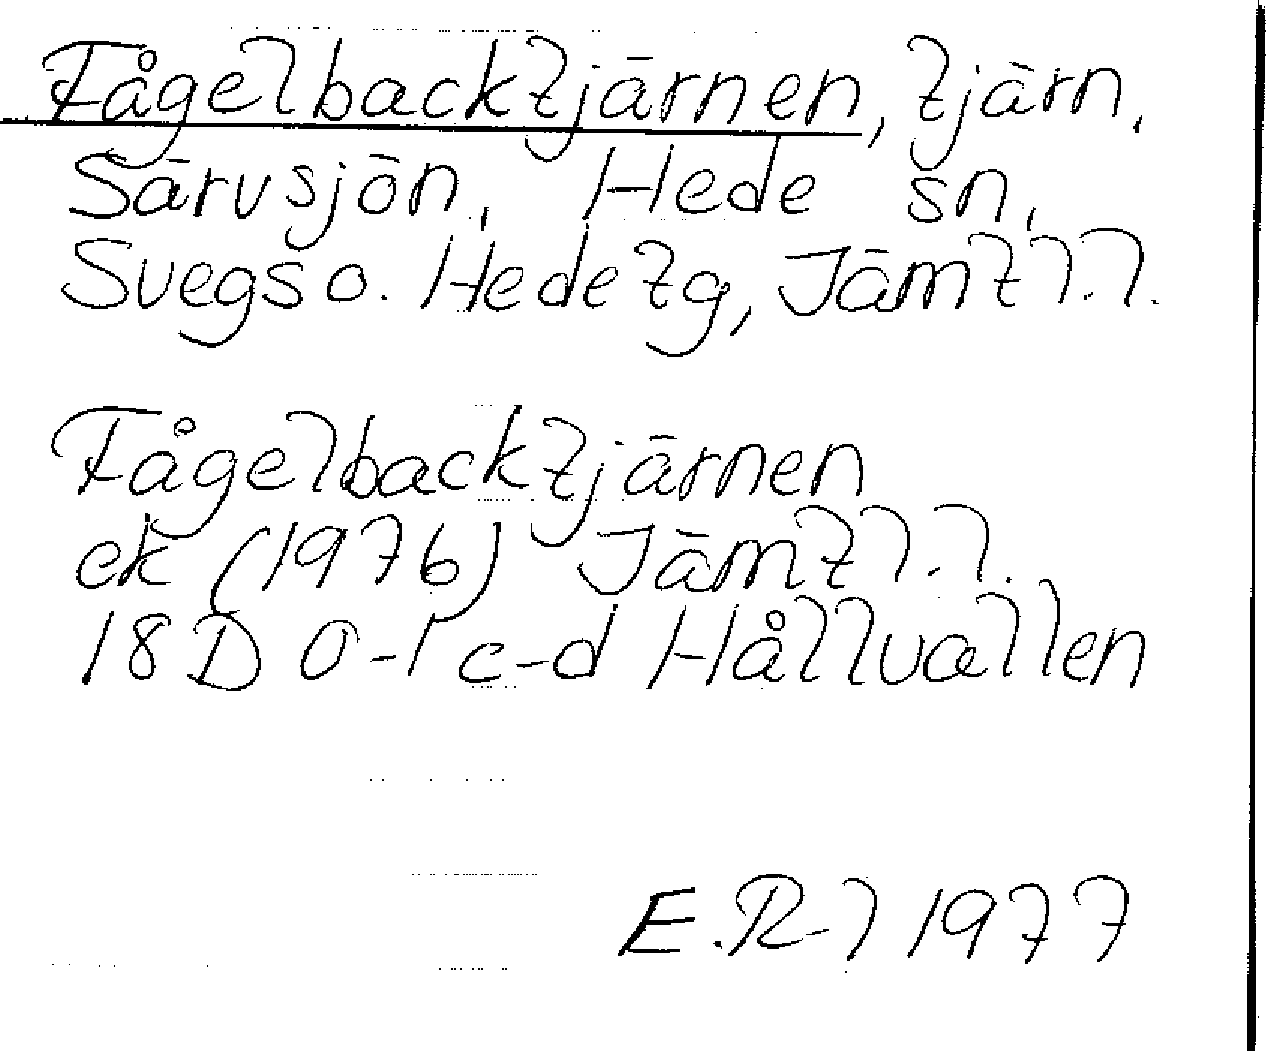 Fågelbacktjärnen, tjärn,
Särvsjön, Hede sn,
Svegs o. Hede tg, Jämtl.l.
Fågelbacktjärnen
ek (1976) Jämtl.l.
18D 0-1 c-d Hållvallen
E.R-l 1977